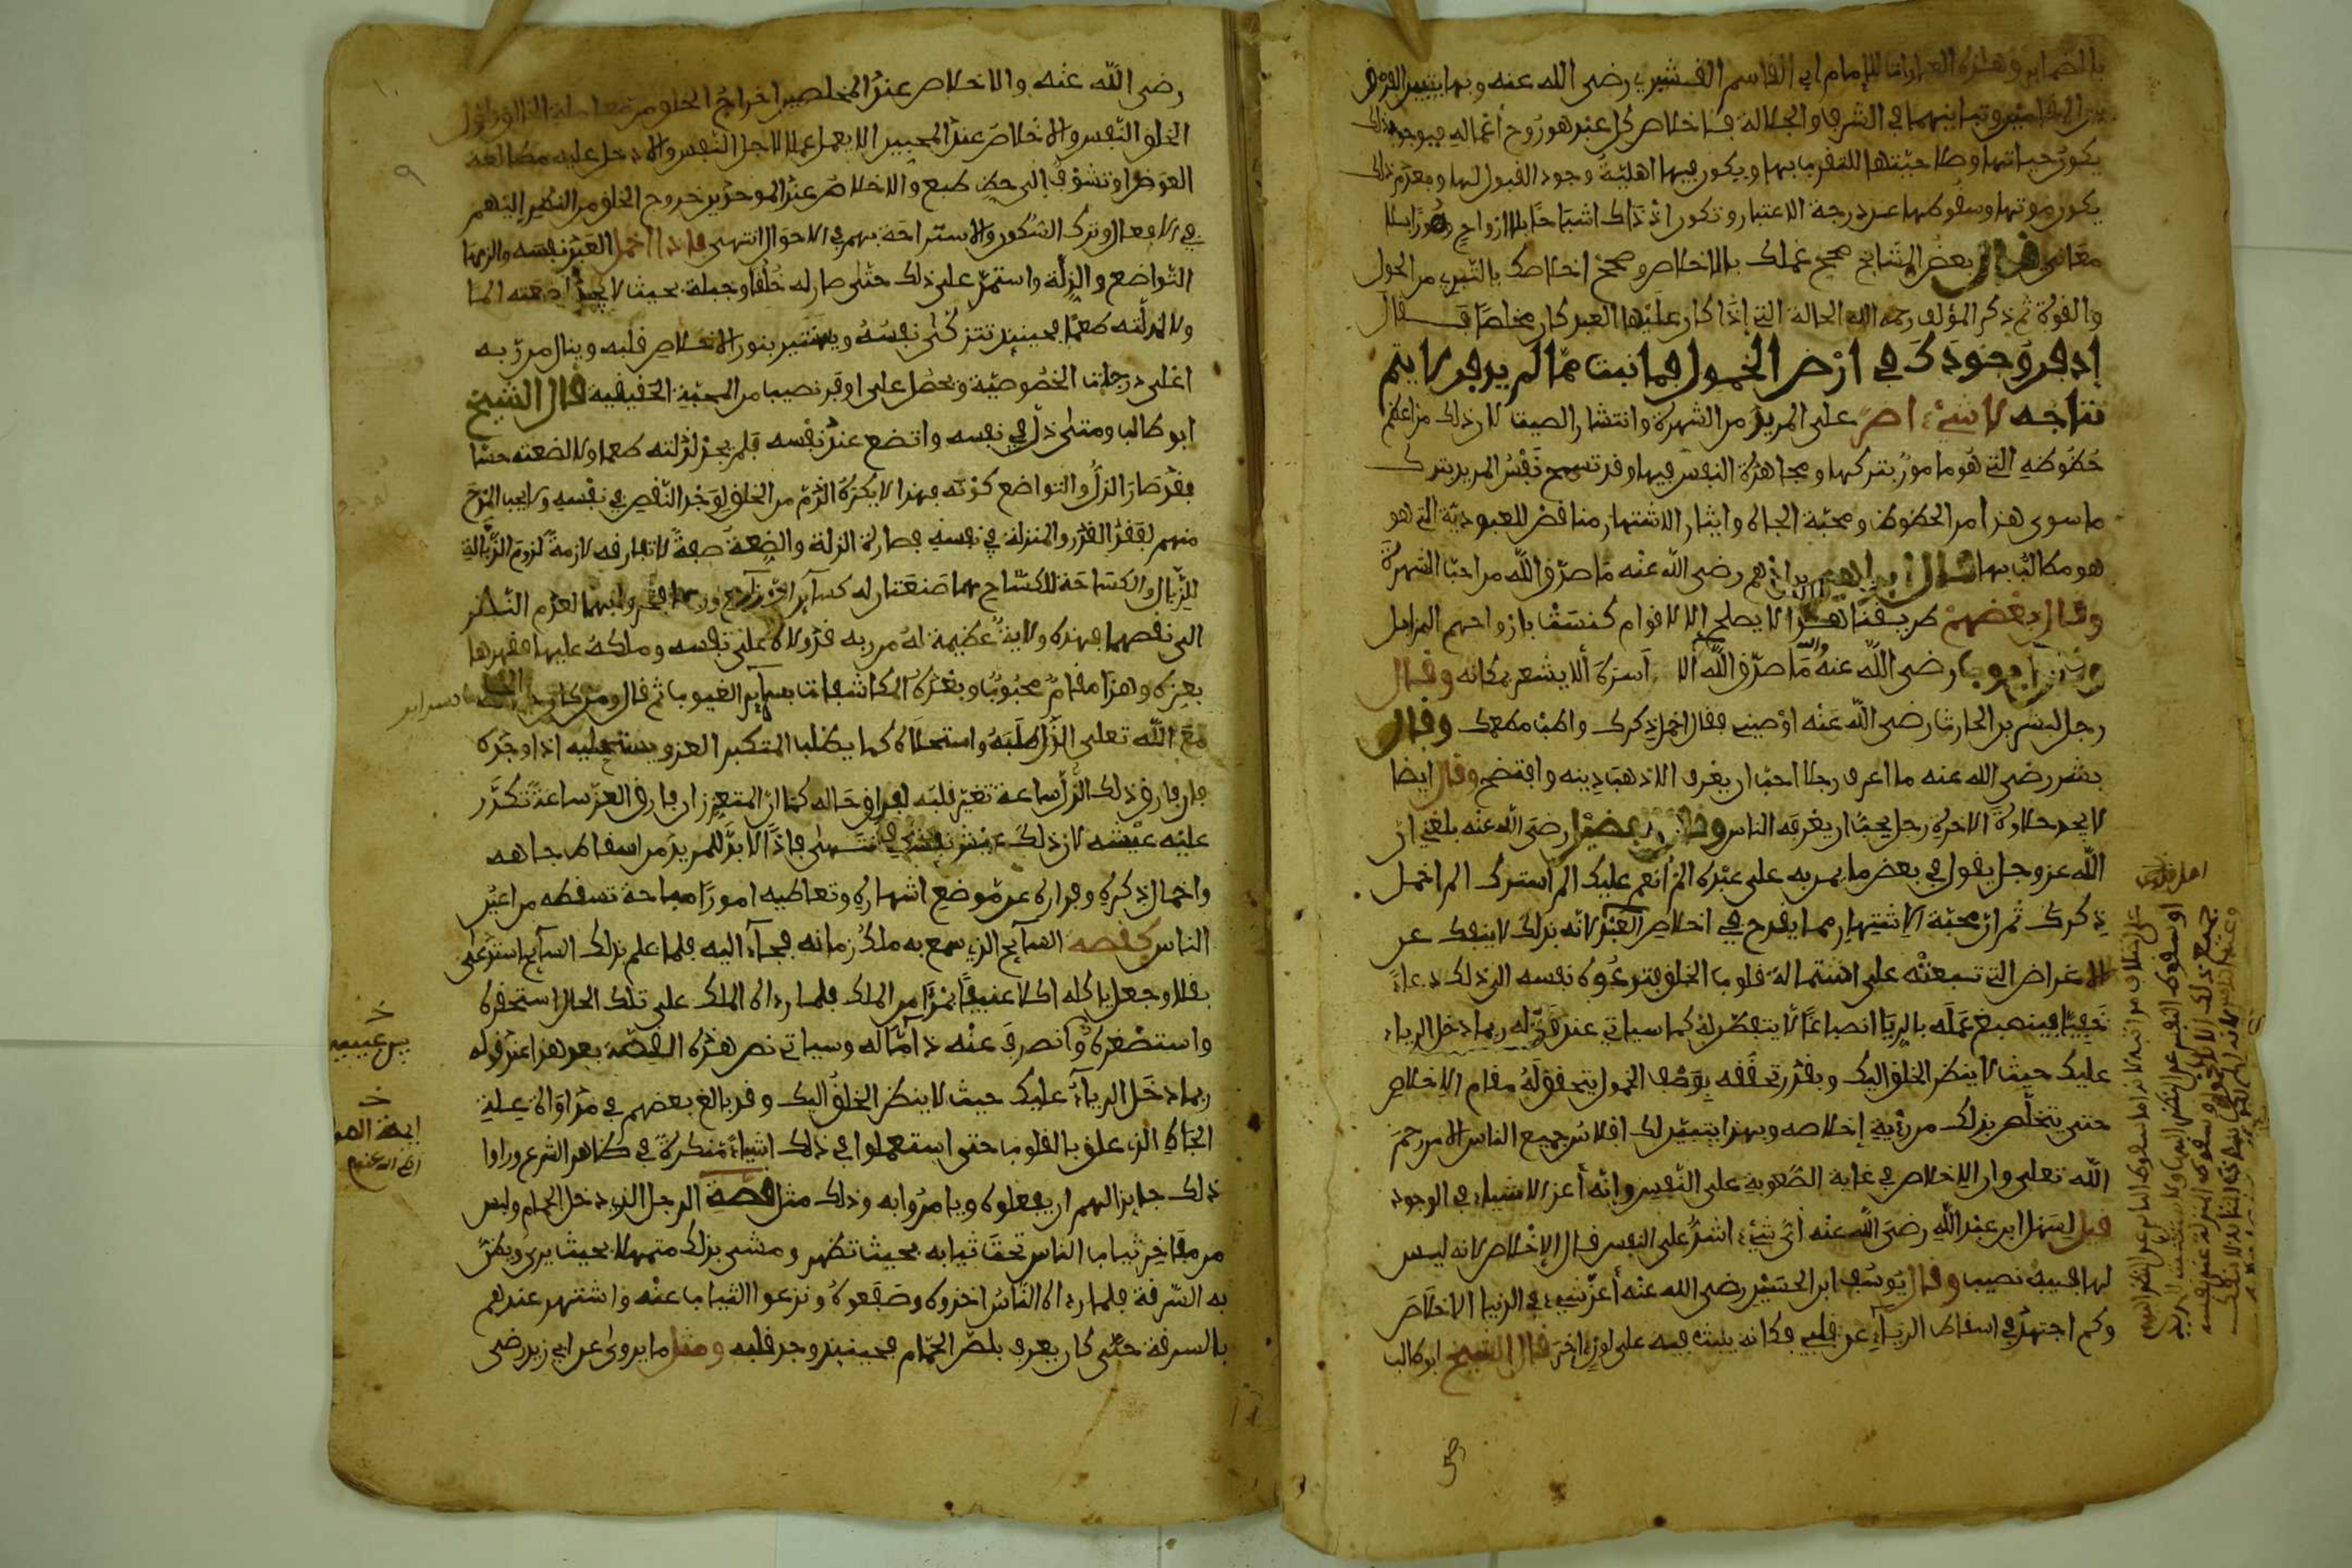 بالضماير وهذه العبارات للإمام ابي القاسم القشيري رضى الله عنه وبها يتبين الفرق
بين المقامين وتباينهما في الشرف والجلالة فاخلاص كل عبد هو روح أعماله فبوجود ذلك
يكون حياتها وصلاحيتها للتقرب بها ويكون فيها اهلية وجود القبول لها وبعدم ذلك
يكون موتها وسقوطها عن درجة الاعتبار وتكون اذ ذاك اشباحا بلا ارواح وصورا بلا
معانى قال بعض المشايخ صحح عملك بالاخلاص وصحح اخلاصك بالتبري من الحول
والقوة ثم ذكر المؤلف رحمه الله الحالة التي إذا كان عليها العبد كان مخلصا فقال
إدفن وجودك في ارض الخمول فما نبت مما لم يدفن لا يتم
نتاجه لا شيء اضر على المريد من الشهرة وانتشار الصيت لان ذلك من اعظم
حظوظه التي هو مامور بتركها ومجاهدة النفس فيها وقد تسمح نفس المريد بترك
ما سوى هذا من الحظوظ ومحبة الجاه وايثار الاشتهار مناقض للعبودية التي هو
هو مطالب بها قال ابراهيم بن ادهم رضى الله عنه ما صدق الله من احب الشهرة
وقال بعضهم طريقتنا هذا لا يصلح الا لاقوام كنست بارواحهم المزابل
وقال ايوب رضى الله عنه والله ما صدق الله الا سره ألا يشعر بمكانه وقال
رجل لبشر بن الحارث رضى الله عنه اوصيني فقال اخمل ذكرك واطب مطعمك وقال
بشر رضى الله عنه ما اعرف رجلا احب ان يعرف الا ذهب دينه وافتضح وقال ايضا
لا يجد حلاوة الاخرة رجل يحب ان يعرفه الناس وقال الفضيل رضى الله عنه بلغني ان
الله عز وجل يقول في بعض ما يمن به على عبده الم انعم عليك الم استرك الم اخمل
ذكرك ثم ان محبة الاشتهار مما يقدح في اخلاص العبد لانه بذلك لا ينفك عن
الاغراض التي تبعثه على استمالة قلوب الخلق فتدعوه نفسه الى ذلك دعاء
خفيا فينصبغ عمله بالريا انصباغا لا يتفطن له كما سياتي عند قوله ربما دخل الرياء
عليك حيث لا ينظر الخلق اليك وبقدر تحققه بوصف الخمول يتحقق له مقام الاخلاص
حتى يتخلص بذلك من رؤية إخلاصه وبهذا يتبين لك افلاس جميع الناس الا من رحم
الله تعلى وان الاخلاص في غاية الصعوبة على النفس وانه أعز الاشياء في الوجود
قيل لسهل ابن عبد الله رضى الله عنه أي شيء اشد على النفس قال الإخلاص لانه ليس
لها فيه نصيب وقال يوسف ابن الحسين رضى الله عنه أعز شيء في الدنيا الاخلاص
وكم اجتهد في اسقاط الرياء عن قلبي فكانه ينبت فيه على لون اخر قال الشيخ ابو طالب
رضى الله عنه والاخلاص عند المخلصين اخراج الخلق من معاملة الخالق واول
الخلق النفس والاخلاص عند المحبين الا يعمل عملا لاجل النفس والا دخل عليه مطالعة
العوض او تشوف الى حظ طبع والاخلاص عند الموحدين خروج الخلق من النظر إليهم
في الافعال وترك السكون والاستراحة بهم في الاحوال انتهى فاذا اخمل العبد نفسه والزمها
التواضع والذلة واستمر على ذلك حتى صار له خلقا وجبلة بحيث لا يجد لضعته الما
ولا لذلته طعما فحينئذ تتزكى نفسه ويستنير بنور الاخلاص قلبه وينال من ربه
اعلى درجات الخصوصية ويحصل على اوفر نصيب من المحبة الحقيقية قال الشيخ
ابو طالب ومتى ذل في نفسه واتضع عند نفسه فلم يجد لذلته طعما ولا لضعته حسا
فقد صار الذل والتواضع كونه فهذا لا يكره الذم من الخلق لوجد النقص في نفسه ولا يحب المدح
منهم لفقد القدر والمنزلة في نفسه فصارت الذلة والضعة صفة لا تفارقه لازمة لزوم الزبالة
للزبال والكساحة للكساح هما صنعتان له كساير الصنايع وربما فخروا بهما لعدم النظر
الى نقصهما فهذه ولاية عظيمة له من ربه قد ولاه على نفسه وملكه عليها فقهرها
بعزه وهذا مقام محبوب وبعده المكاشفات بسراير الغيوب ثم قال ومن كان حاله
مع الله تعلى الذل طلبه واستحلاه كما يطلب المتكبر العز ويستحليه اذا وجده
فان فارق ذلك الذل ساعة تغير قلبه لفراق حاله كما ان المتعزز ان فارق العز ساعة تكدر
عليه عيشه لان ذلك عيش نفسه انتهى فاذا لا بد للمريد من اسقاط جاهه
واخمال ذكره وفراره عن موضع اشتهاره وتعاطيه امورا مباحة تسقطه من اعين
الناس كقصة السايح الذي سمع به ملك زمانه فجاء اليه فلما علم بذلك السايح استدعى
بقلا وجعل ياكله اكلا عنيفا بمرأى من الملك فلما رءاه الملك على تلك الحال استحقره
واستصغره وانصرف عنه ذاما له وسياتي نص هذه القصة بعد هذا عند قوله
ربما دخل الرياء عليك حيث لا ينظر الخلق اليك وقد بالغ بعضهم في مداواة علة
الجاه الذي علق بالقلوب حتى استعملوا في ذلك اشياء منكرة في ظاهر الشرع وراوا
ذلك جايزا لهم ان يفعلوه ويامروا به وذلك مثل قصة الرجل الذي دخل الحمام ولبس
من فاخر ثياب الناس تحت ثيابه بحيث تظهر ومشى بذلك متمهلا بحيث يرى ويظن
به السرقة فلما رءاه الناس اخذوه وصفعوه ونزعوا الثياب عنه واشتهر عندهم
بالسرقة حتى كان يعرف بلص الحمام فحينئذ وجد قلبه ومثل ما يروى عن ابي زيد رضى